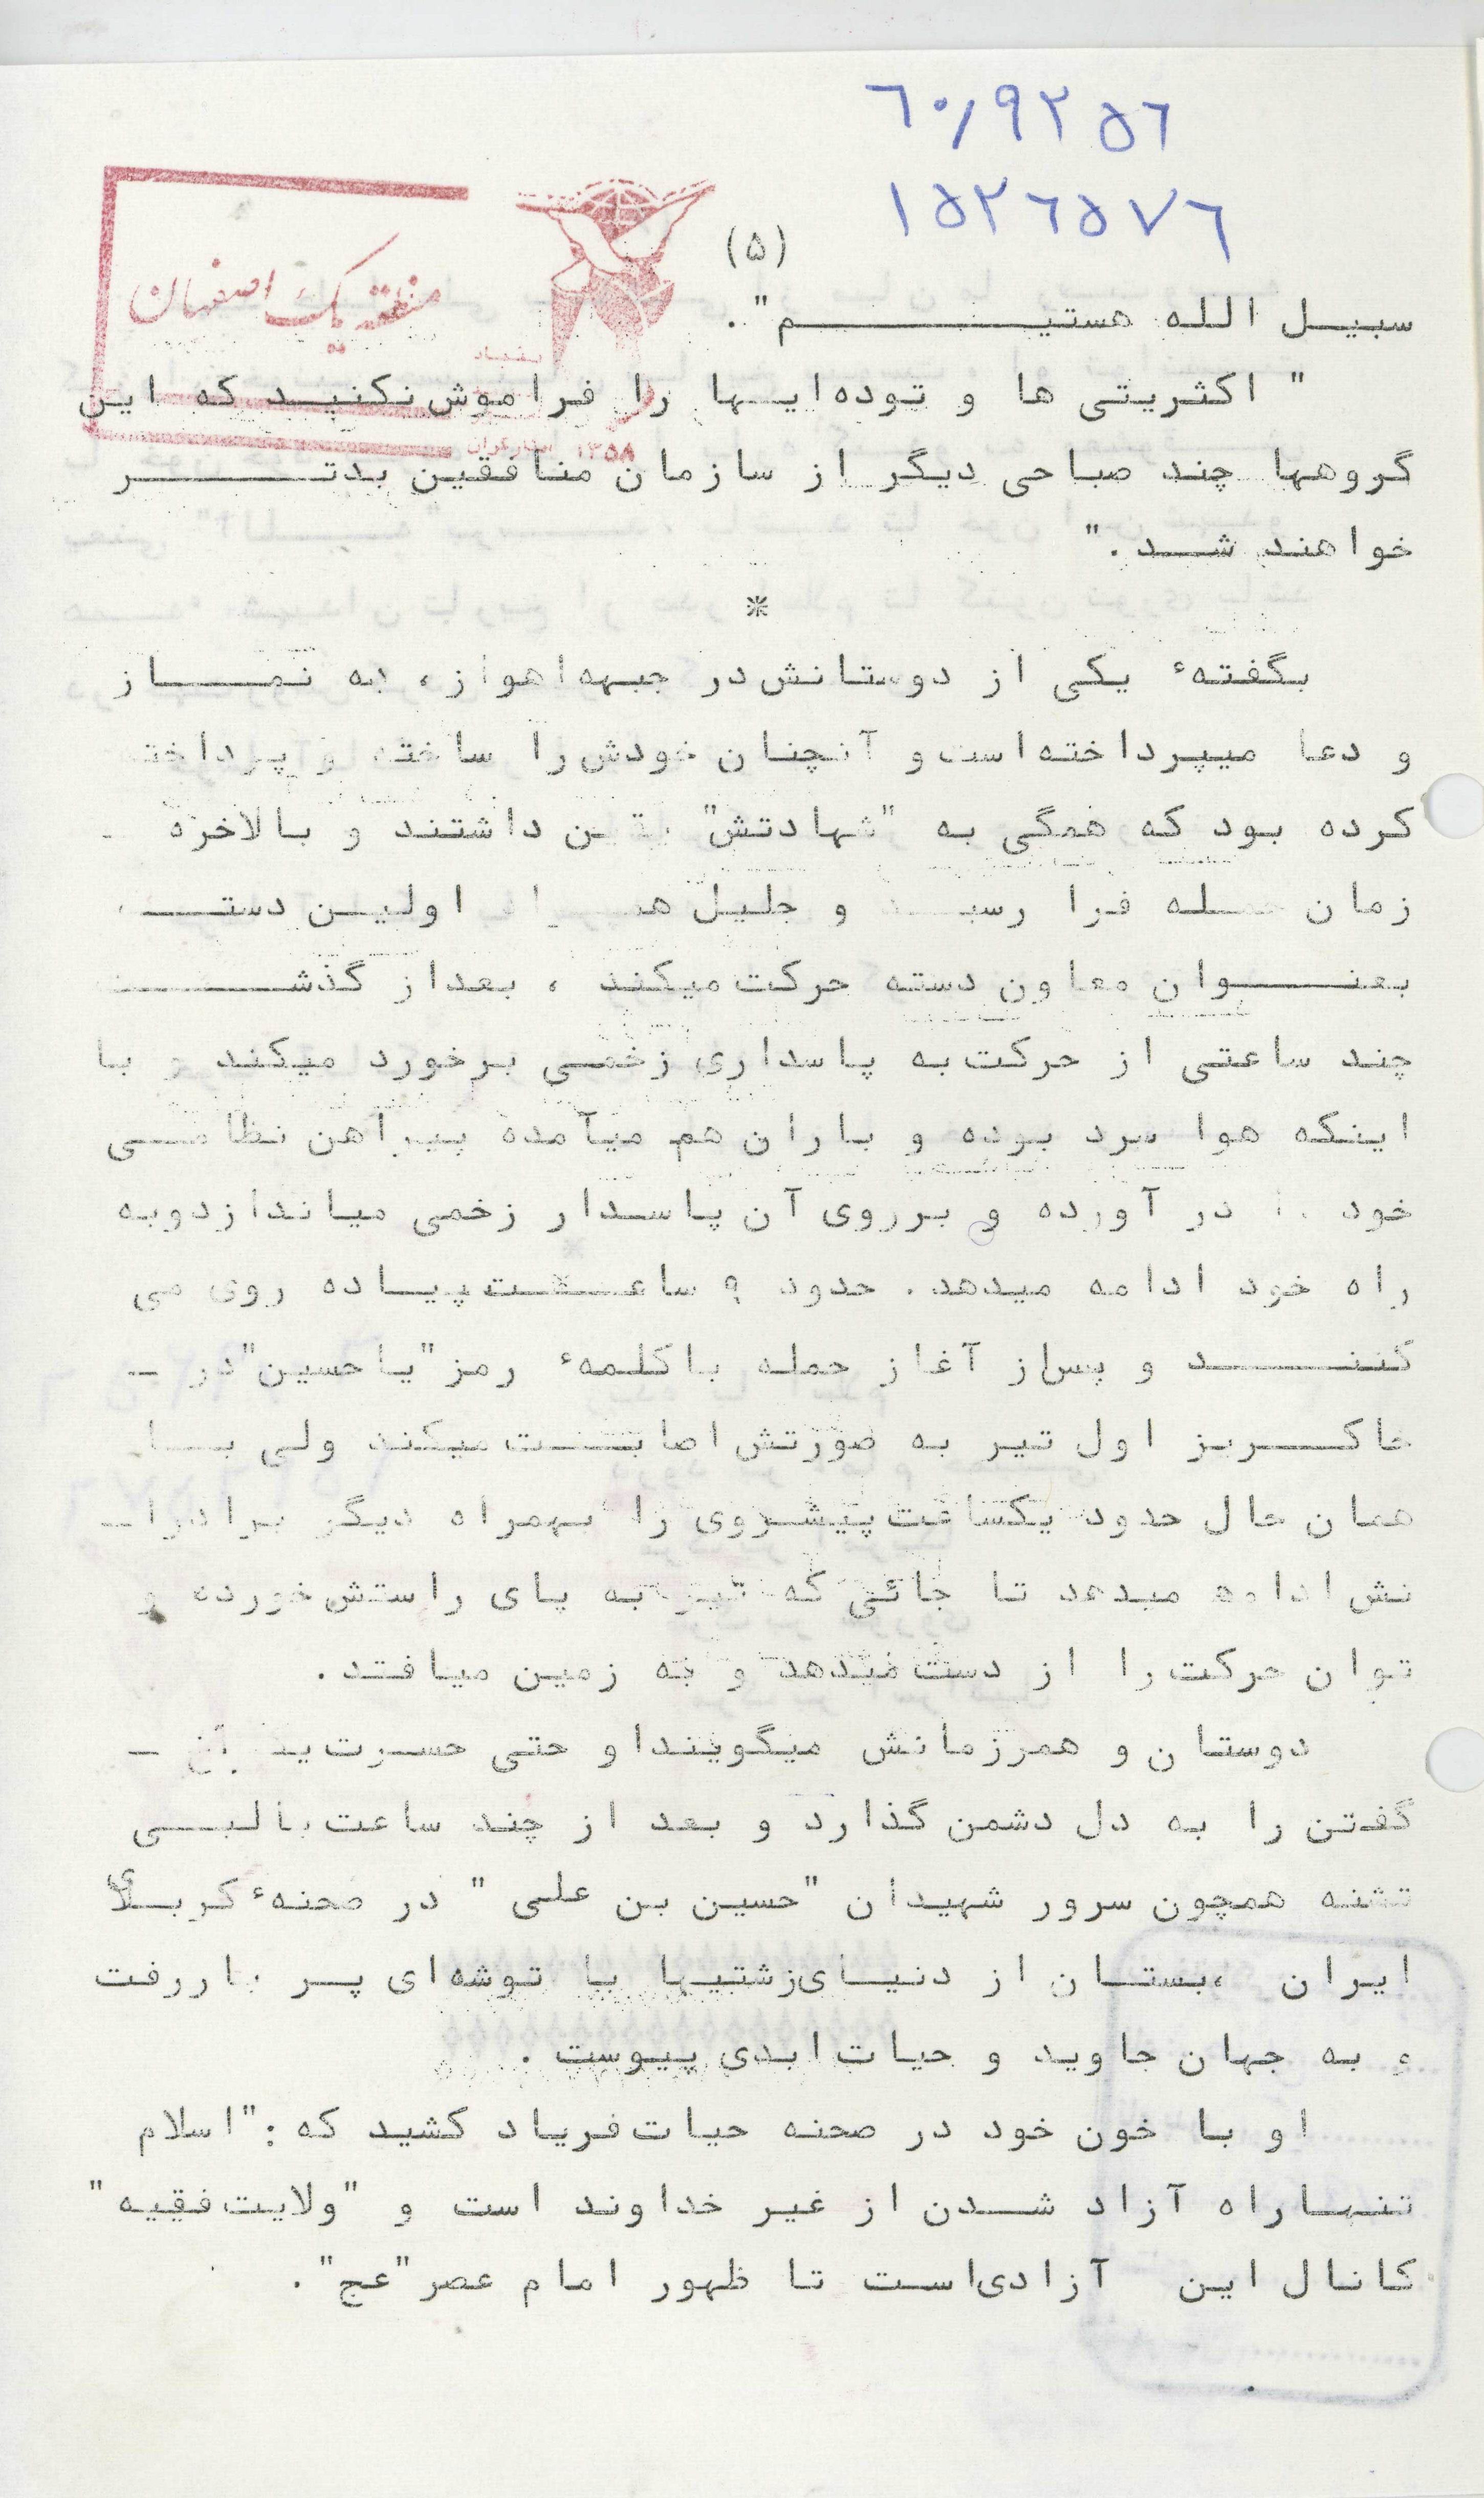 ٦٠/٩٢٥٦
١٥٢٦٥٧٦
(۵)
منطقه یک اصفهان
بنیاد
۱۳۵۸
سبیل الله هستیم".
" اکثریتی ها و توده‌ایها را فراموش نکنید که این
گروهها چند صباحی دیگر از سازمان منافقین بدتر
خواهند شد."
*
بگفتهٔ یکی از دوستانش در جبهه اهواز، به نماز
و دعا میپرداخته است و آنچنان خودش را ساخته و پرداخته
کرده بود که همگی به "شهادتش" یقین داشتند و بالاخره
زمان حمله فرا رسید و جلیل اولین دسته
بعنوان معاون دسته حرکت میکند ، بعداز گذشت
چند ساعتی از حرکت به پاسداری زخمی برخورد میکند و با
اینکه هوا سرد بوده و باران هم میآمده پیراهن نظامی
خود را در آورده و برروی آن پاسدار زخمی میاندازدوبه
راه خود ادامه میدهد. حدود ۹ ساعت پیاده روی می
کنند و پس‌از آغاز حمله باکلمهٔ رمز "یا حسین" در -
خاکریز اول تیر به صورتش اصابت میکند ولی با
همان حال حدود یکساعت پیشروی را بهمراه دیگر برادرا-
نش ادامه میدهد تا جائی که تیر به پای راستش خورده و
توان حرکت را از دست میدهد و به زمین میافتد.
دوستان و همرزمانش میگویند او حتی حسرت یک آخ -
گفتن را به دل دشمن گذارد و بعد از چند ساعت با لبی
تشنه همچون سرور شهیدان "حسین بن علی " در صحنهٔ کربلای
ایران ،بستان از دنیای زشتیها با توشه‌ای پر بار رفت
و به جهان جاوید و حیات ابدی پیوست .
او با خون خود در صحنه حیات فریاد کشید که : "اسلام
تنها راه آزاد شدن از غیر خداوند است و "ولایت فقیه"
کانال این آزادی‌است تا ظهور امام عصر "عج".